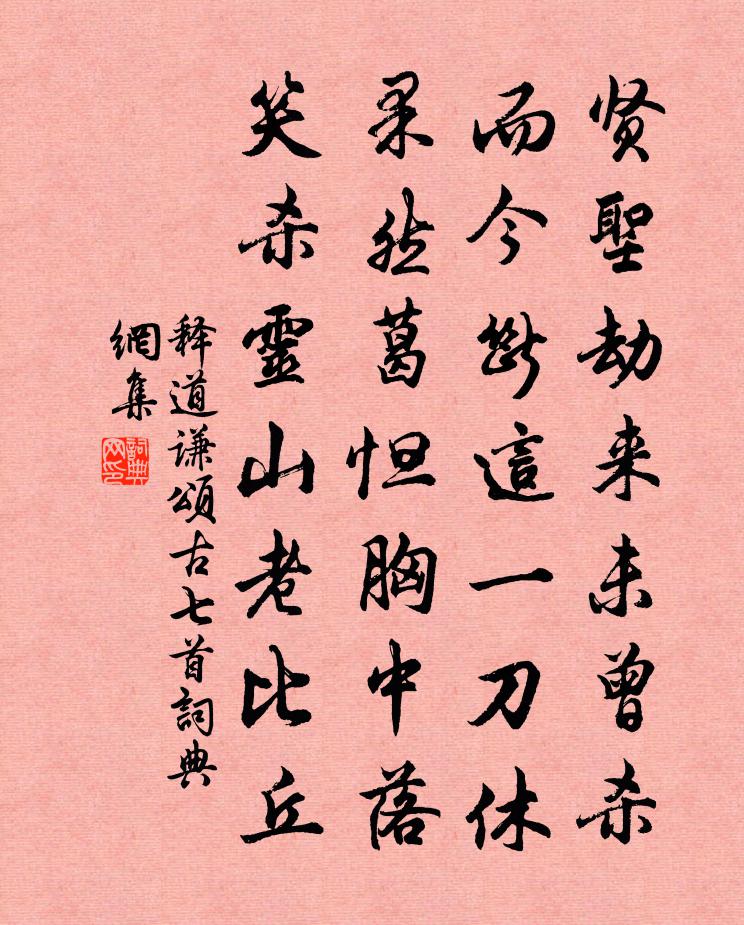 贤聖劫来未曾杀
而今断這一刀休
果然葛怛胸中落
笑杀靈山老比丘
释道谦頌古七首詞典
網集
詞典网印